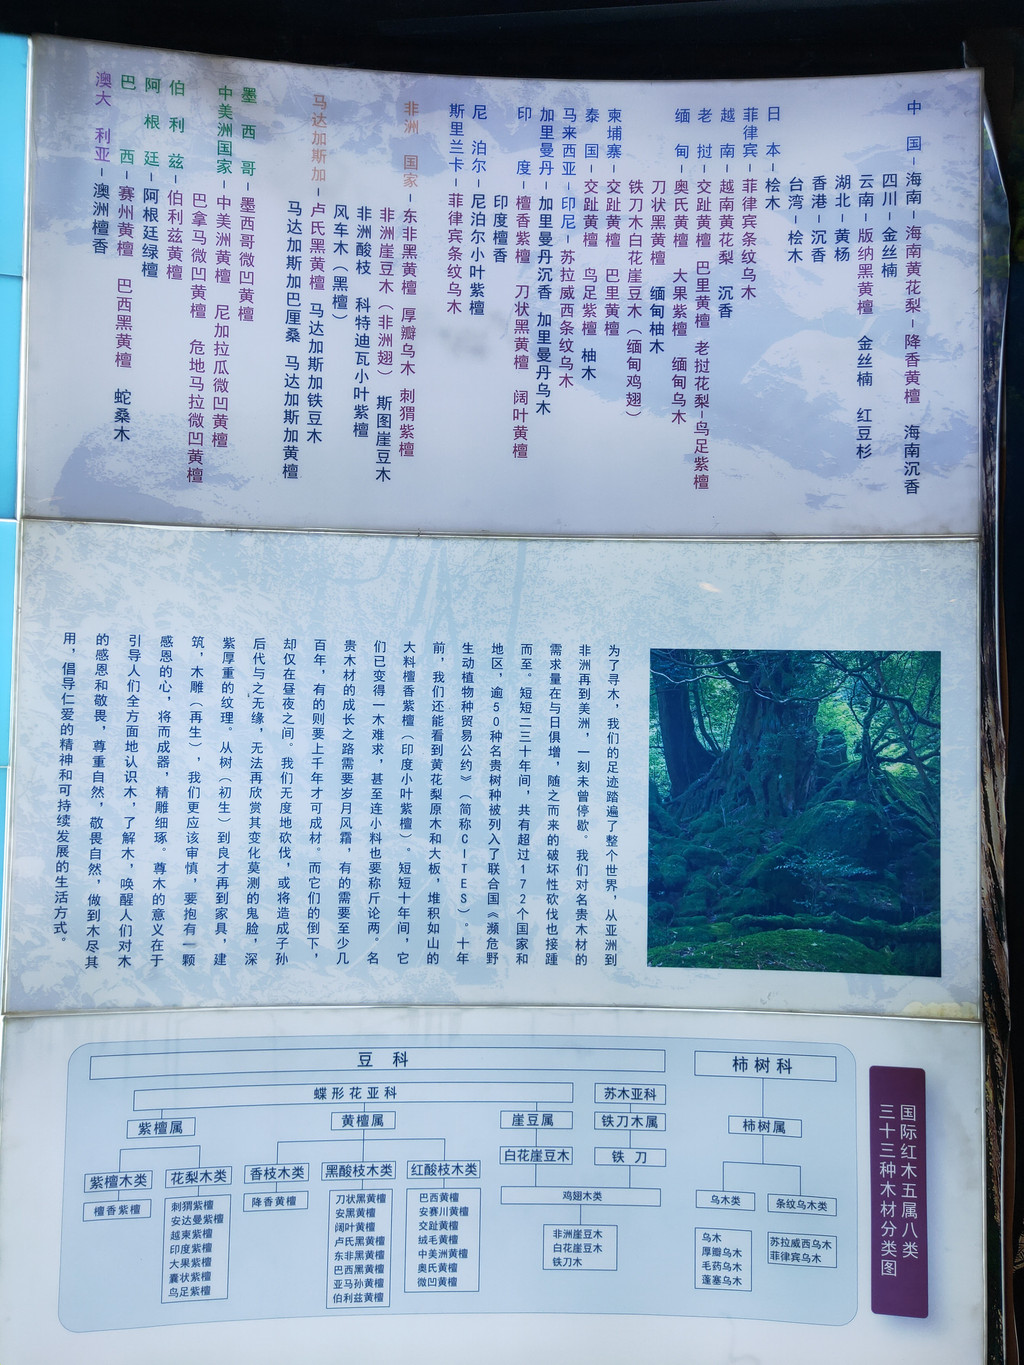 中国－海南－海南黄花梨－降香黄檀 海南沉香
四川－金丝楠
云南－版纳黑黄檀 金丝楠 红豆杉
湖北－黄杨
香港－沉香
台湾－桧木
日本－桧木
菲律宾－菲律宾条纹乌木
越南－越南黄花梨 沉香
老挝－交趾黄檀 巴里黄檀 老挝花梨－鸟足紫檀
缅甸－奥氏黄檀 大果紫檀 缅甸乌木
刀状黑黄檀 缅甸柚木
铁刀木白花崖豆木（缅甸鸡翅）
柬埔寨－交趾黄檀 巴里黄檀
泰国－交趾黄檀 鸟足紫檀 柚木
马来西亚－印尼－苏拉威西条纹乌木
加里曼丹－加里曼丹沉香 加里曼丹乌木
印度－檀香紫檀 刀状黑黄檀 阔叶黄檀
印度檀香
尼泊尔－尼泊尔小叶紫檀
斯里兰卡－菲律宾条纹乌木
非洲国家－东非黑黄檀 厚瓣乌木 刺猬紫檀
非洲崖豆木（非洲翅） 斯图崖豆木
非洲酸枝 科特迪瓦小叶紫檀
风车木（黑檀）
马达加斯加－卢氏黑黄檀 马达加斯加铁豆木
马达加斯加巴厘桑 马达加斯加黄檀
墨西哥－墨西哥微凹黄檀
中美洲国家－中美洲黄檀 尼加拉瓜微凹黄檀
巴拿马微凹黄檀 危地马拉微凹黄檀
伯利兹－伯利兹黄檀
阿根廷－阿根廷绿檀
巴西－赛州黄檀 巴西黑黄檀 蛇桑木
澳大利亚－澳洲檀香
为了寻木，我们的足迹踏遍了整个世界，从亚洲到
非洲再到美洲，一刻未曾停歇。我们对名贵木材的
需求量在与日俱增，随之而来的破坏性砍伐也接踵
而至。短短二三十年间，共有超过172个国家和
地区，逾50种名贵树种被列入了联合国《濒危野
生动植物种贸易公约》（简称CITES）。十年
前，我们还能看到黄花梨原木和大板，堆积如山的
大料檀香紫檀（印度小叶紫檀）。短短十年间，它
们已变得一木难求，甚至连小料也要称斤论两。名
贵木材的成长之路需要岁月风霜，有的需要至少几
百年，有的则要上千年才可成材。而它们的倒下，
却仅在昼夜之间。我们无度地砍伐，或将造成子孙
后代与之无缘，无法再欣赏其变化莫测的鬼脸，深
紫厚重的纹理。从树（初生）到良才再到家具，建
筑，木雕（再生），我们更应该审慎，要抱有一颗
感恩的心，将而成器，精雕细琢。尊木的意义在于
引导人们全方面地认识木，了解木，唤醒人们对木
的感恩和敬畏，尊重自然，敬畏自然，做到木尽其
用，倡导仁爱的精神和可持续发展的生活方式。
国际红木五属八类
三十三种木材分类图
豆科
柿树科
蝶形花亚科
苏木亚科
紫檀属
黄檀属
崖豆属
铁刀木属
柿树属
紫檀木类
花梨木类
香枝木类
黑酸枝木类
红酸枝木类
白花崖豆木
铁刀
鸡翅木类
乌木类
条纹乌木类
檀香紫檀
刺猬紫檀
安达曼紫檀
越柬紫檀
印度紫檀
大果紫檀
囊状紫檀
鸟足紫檀
降香黄檀
刀状黑黄檀
安黑黄檀
阔叶黄檀
卢氏黑黄檀
东非黑黄檀
巴西黑黄檀
亚马孙黄檀
伯利兹黄檀
巴西黄檀
安赛川黄檀
交趾黄檀
绒毛黄檀
中美洲黄檀
奥氏黄檀
微凹黄檀
非洲崖豆木
白花崖豆木
铁刀木
乌木
厚瓣乌木
毛药乌木
蓬塞乌木
苏拉威西乌木
菲律宾乌木